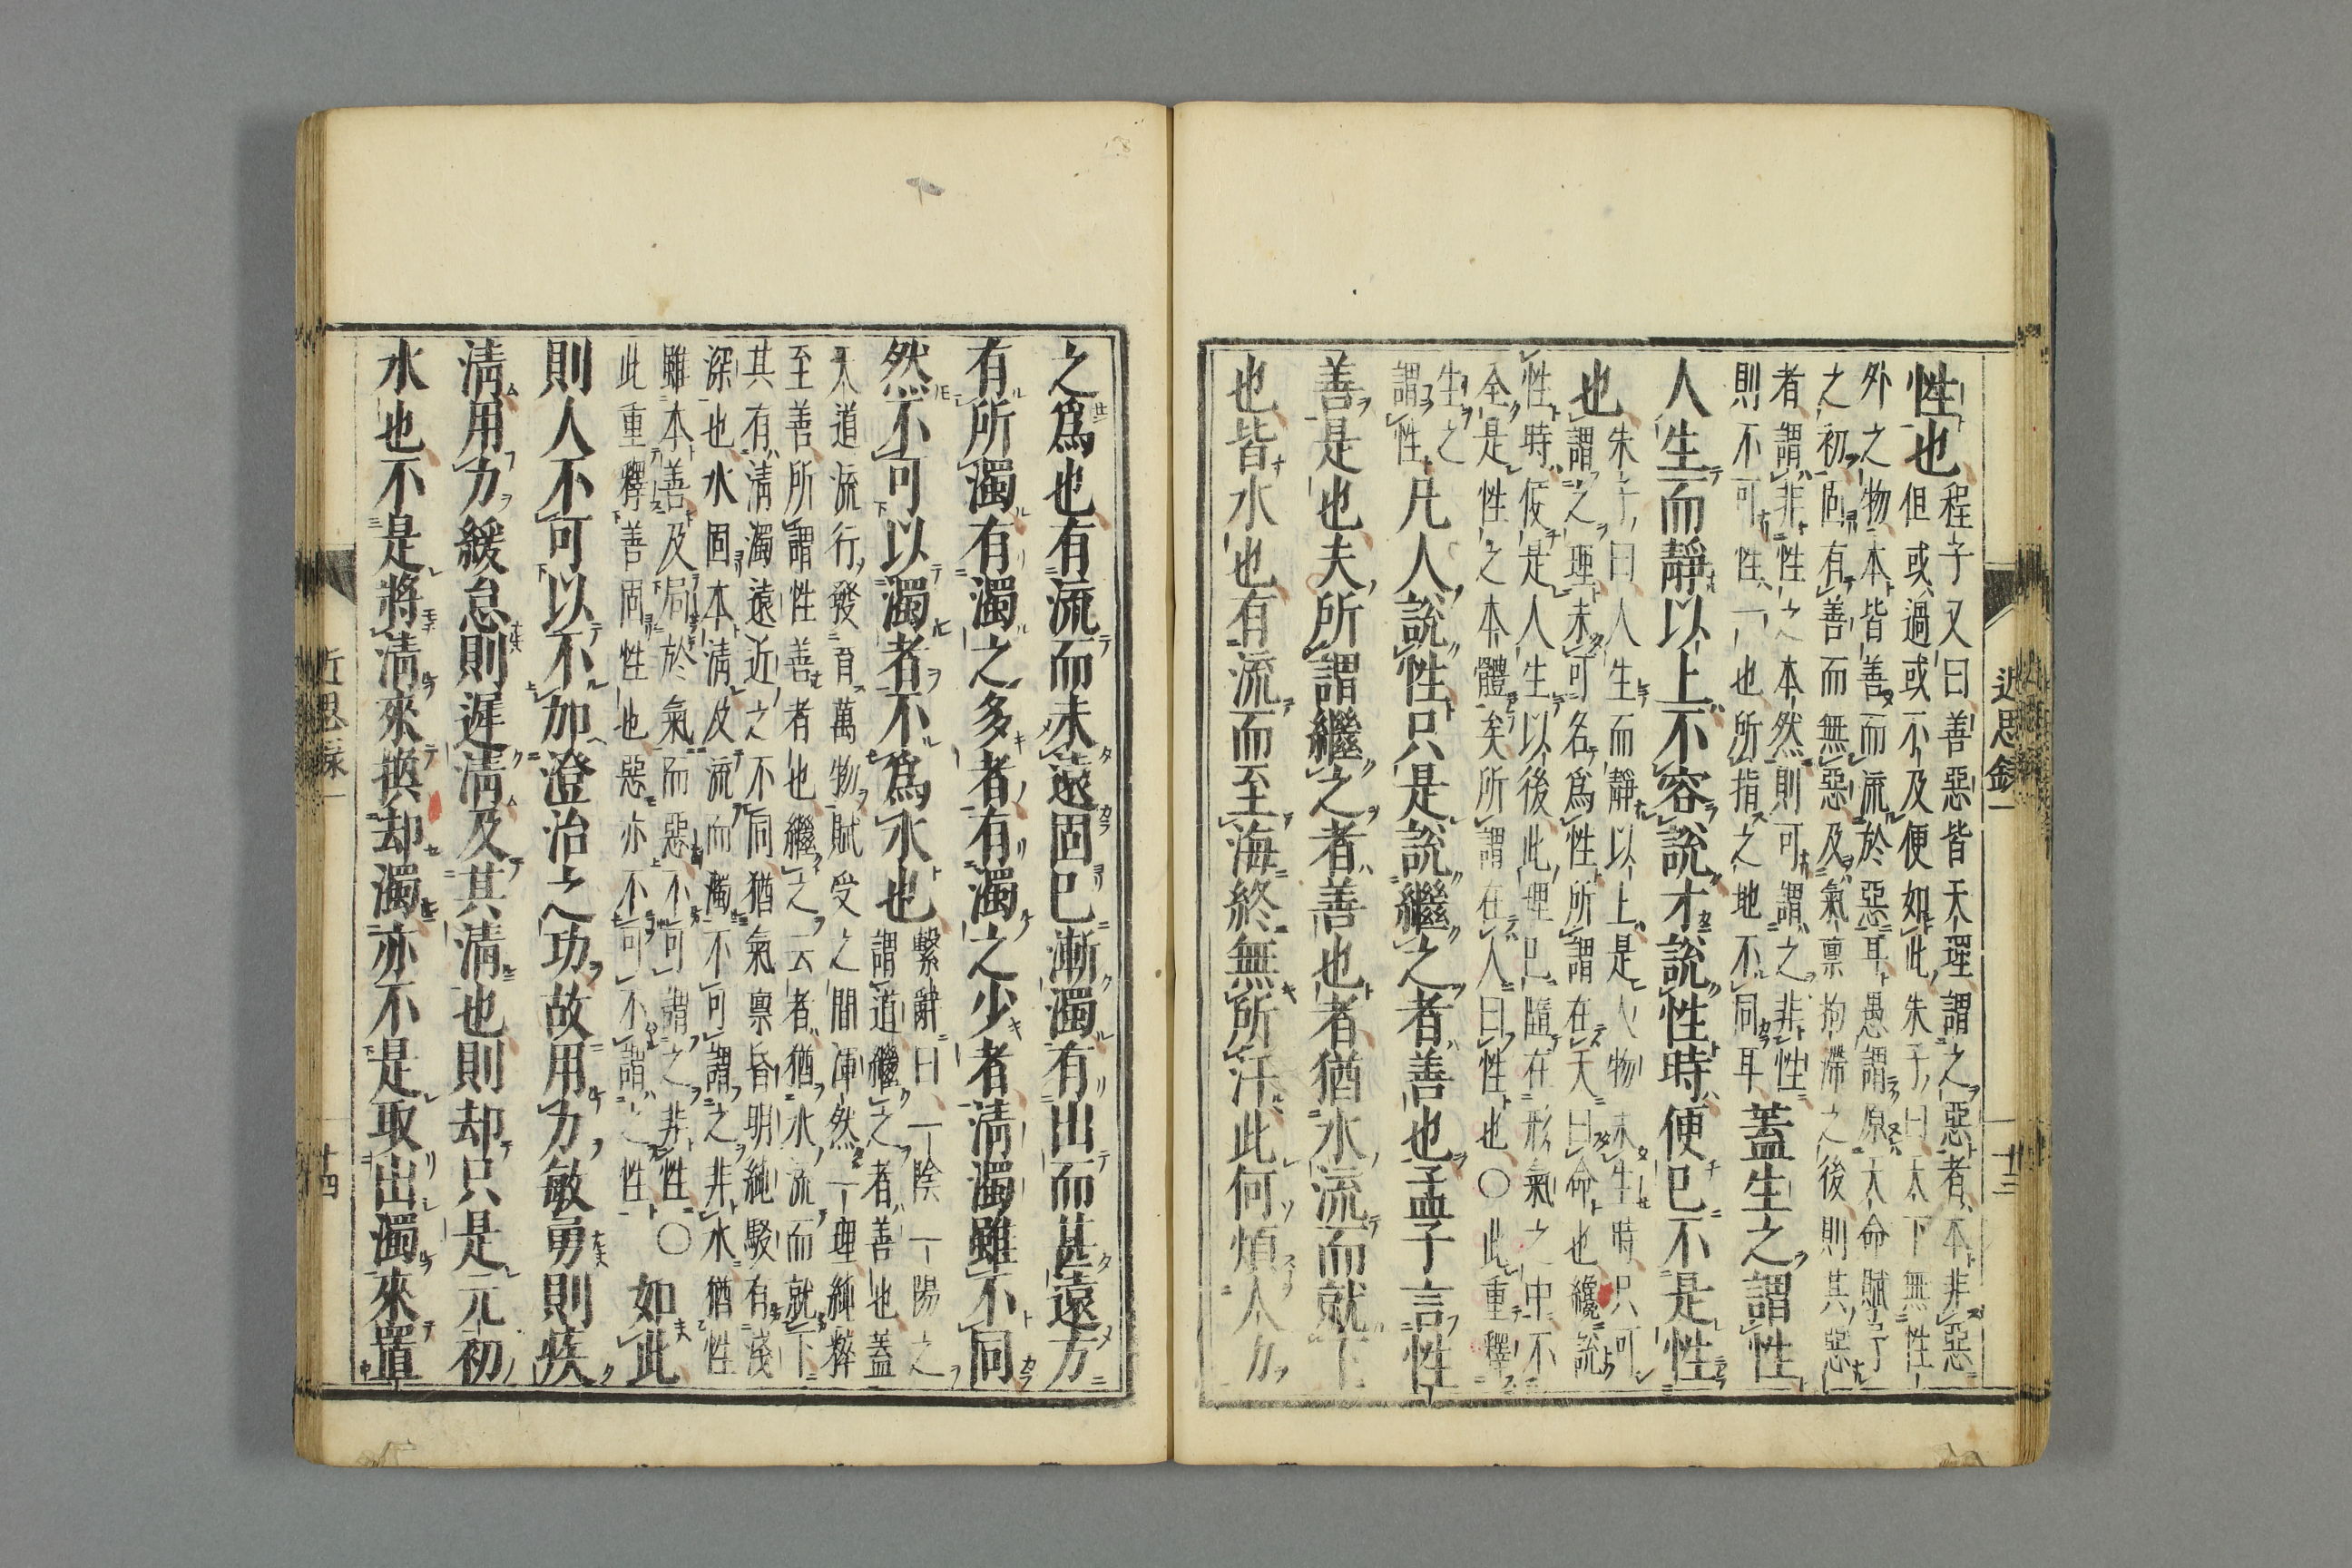 性也
程子又曰善惡皆天理謂之惡者本非惡
但或過或不及便如此朱子曰天下無性
外之物本皆善而流於惡耳愚謂原天命賦予
之初固有善而無惡及氣禀拘滯之後則其惡
者謂非性之本然則可謂之非性
則不可性一也所指之地不同耳
蓋生之謂性
人生而靜以上不容說才說性時便已不是性
也
朱子曰人生而靜以上是人物未生時只可
謂之理未可名爲性所謂在天曰命也纔說
性時便是人生以後此理已隨在形氣之中不
全是性之本體矣所謂在人曰性也〇此重釋
生之
謂性
凡人說性只是說繼之者善也孟子言性
善是也夫所謂繼之者善也者猶水流而就下
也皆水也有流而至海終無所汙此何煩人力
近思錄一
十三
之爲也有流而未遠固已漸濁有出而甚遠方
有所濁有濁之多者有濁之少者淸濁雖不同
然不可以濁者不爲水也
繫辭曰一陰一陽之
謂道繼之者善也蓋
天道流行發育萬物賦受之間渾然一理純粹
至善所謂性善者也繼之云者猶水流而就下
其有淸濁遠近之不同猶氣禀昏明純駁有淺
深也水固本淸及流而濁不可謂之非水猶性
雖本善及局於氣而惡不可謂之非性〇
此重釋善固性也惡亦不可不謂之性
如此
則人不可以不加澄治之功故用力敏勇則疾
淸用力緩怠則遲淸及其淸也則却只是元初
水也不是將淸來換却濁亦不是取出濁來置
近思錄一
十四